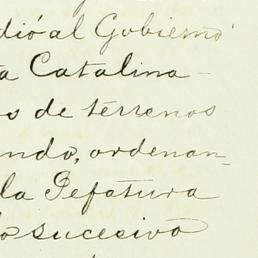 dió al Gobierno
a Catalina
s de terrenos
ndo, ordenan-
la Gefatura
lo sucecivo